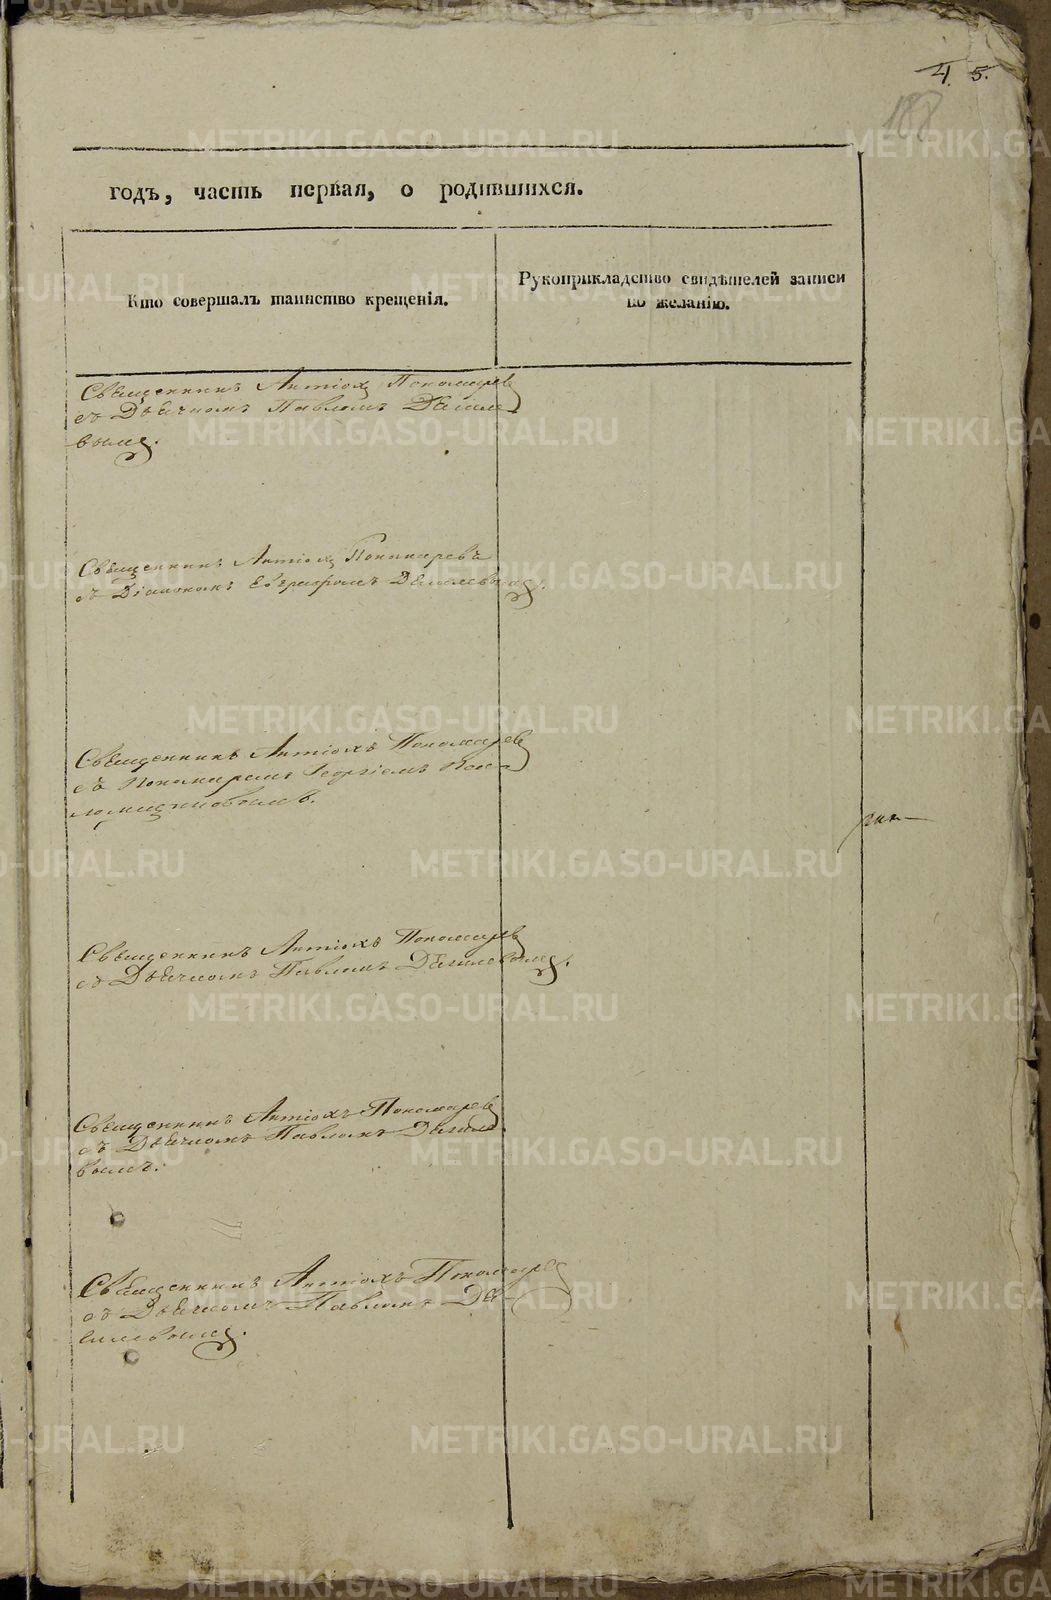 4. 5.
187
годъ, часть первая, о родившихся.
Кто совершалъ таинство крещенія.
Рукоприкладство свидѣтелей записи
по желанію.
Священникъ Антіохъ Пономаревъ
съ Дьячкомъ Павломъ
вымъ.
Священникъ Антіохъ Пономаревъ
съ Діакономъ Евграфомъ
Священникъ Антіохъ Пономаревъ
съ Пономаремъ Георгіемъ
Священникъ Антіохъ Пономаревъ
съ Дьячкомъ Павломъ
Священникъ Антіохъ Пономаревъ
съ Дьячкомъ Павломъ
вымъ.
Священникъ Антіохъ Пономаревъ
съ Дьячкомъ Павломъ
METRIKI.GASO-URAL.RU